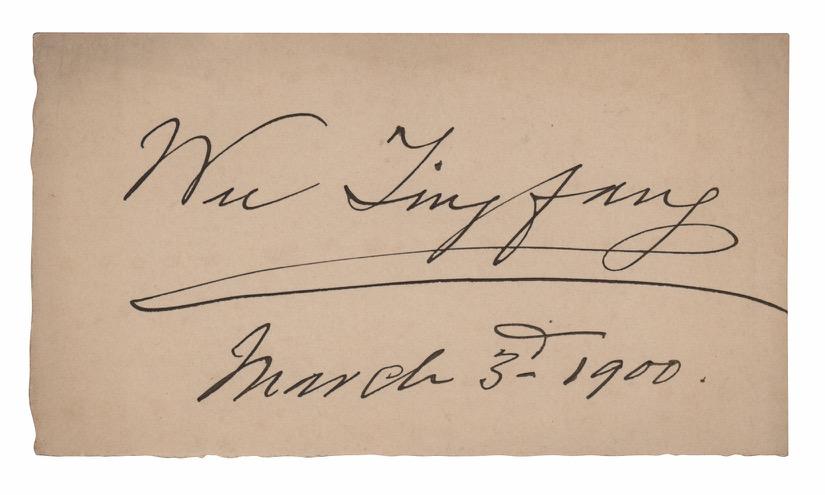 Wu Tingfang
March 3d 1900.